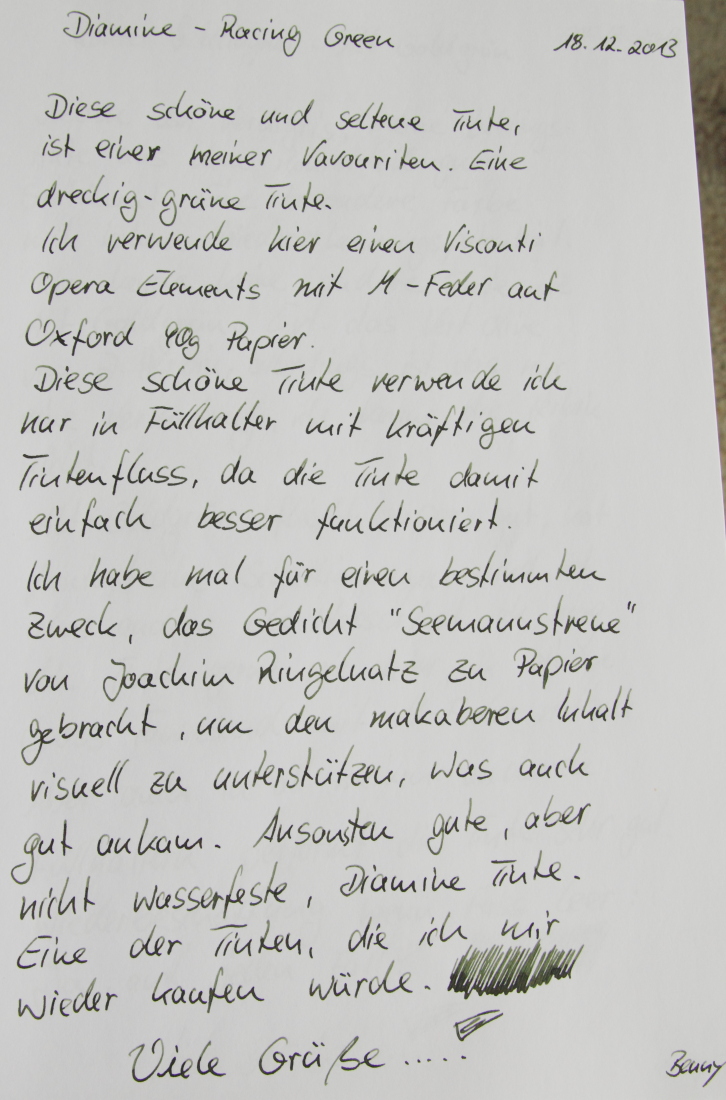 Diamine - Racing Green
18.12.2013
Diese schöne und seltene Tinte,
ist einer meiner Vavouriten. Eine
dreckig-grüne Tinte.
Ich verwende hier einen Visconti
Opera Elements mit M-Feder auf
Oxford 90g Papier.
Diese schöne Tinte verwende ich
nur in Füllhalter mit kräftigen
Tintenfluss, da die Tinte damit
einfach besser funktioniert.
Ich habe mal für einen bestimmten
Zweck, das Gedicht "Seemannstreue"
von Joachim Ringelnatz zu Papier
gebracht, um den makaberen Inhalt
visuell zu unterstützen, was auch
gut ankam. Ansonsten gute, aber
nicht wasserfeste, Diamine Tinte.
Eine der Tinten, die ich mir
wieder kaufen würde.
Viele Grüße .....
Benny